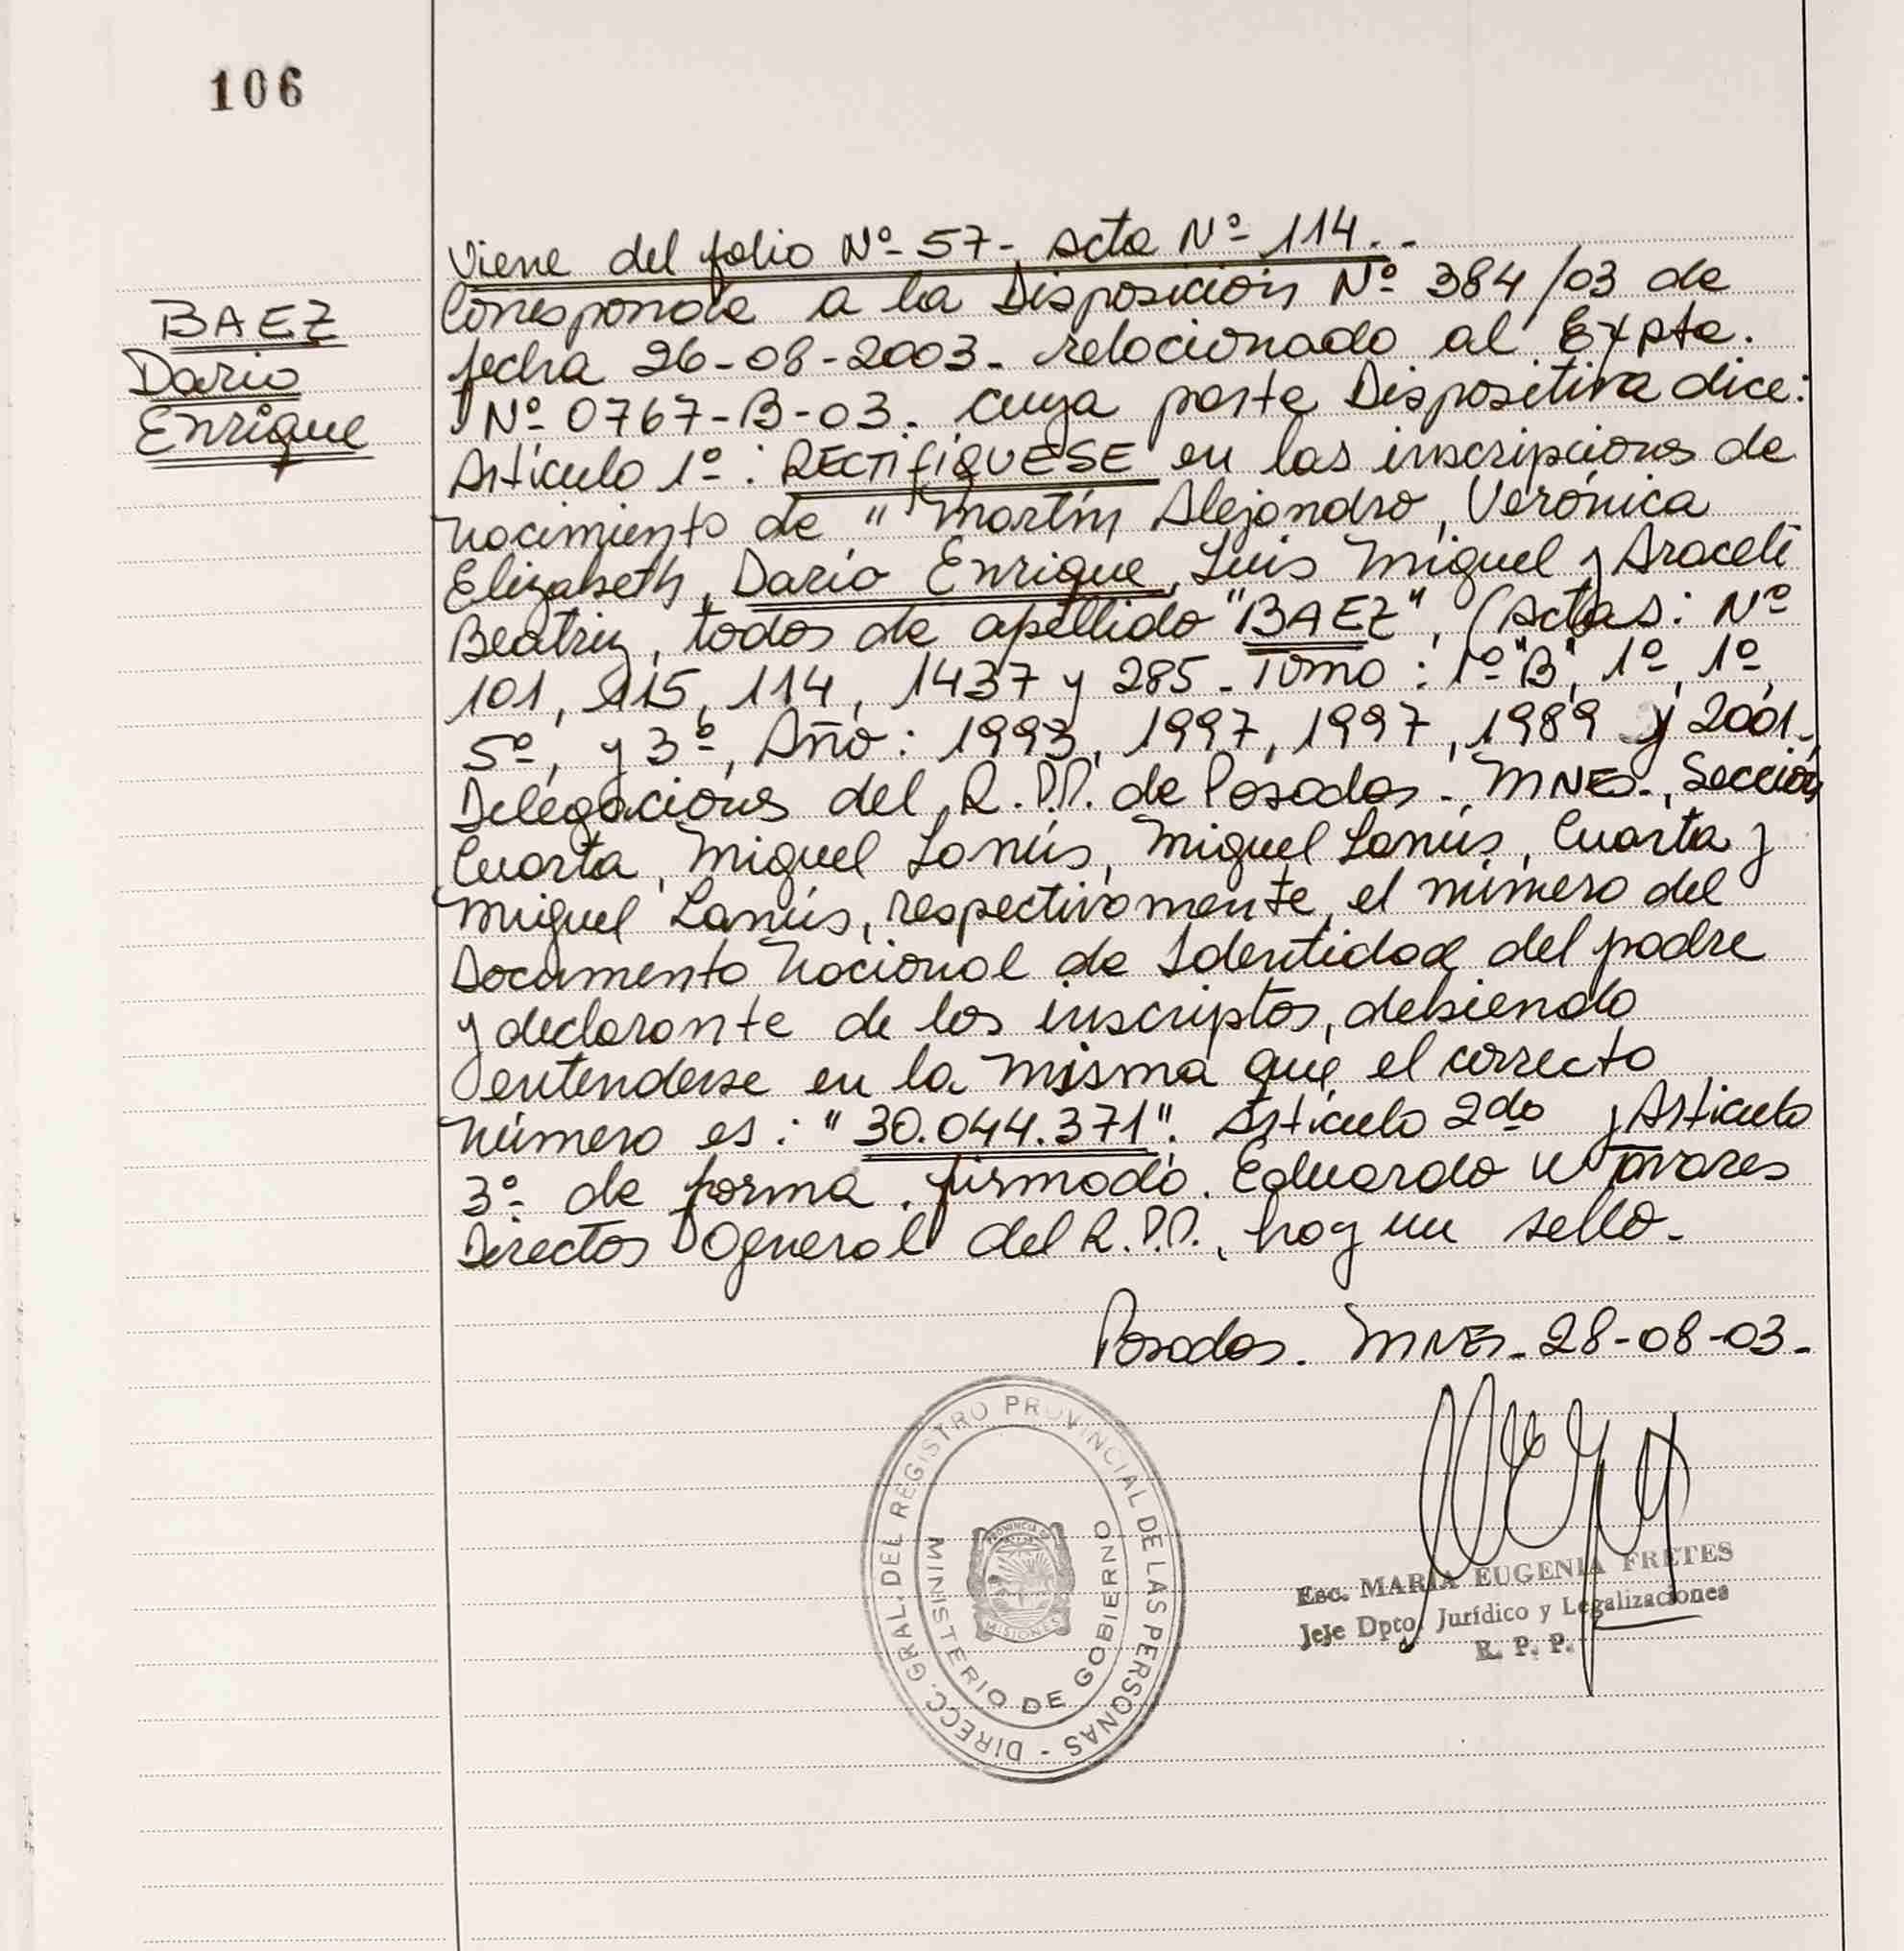 106
BAEZ
Dario
Enrique
Viene del folio Nº 57- Acta Nº 114.-
Corresponde a la Disposición Nº 384/03 de
fecha 26-08-2003- relacionado al Expte.
Nº 0767-B-03. cuya parte Dispositiva dice:
Artículo 1º: RECTIFIQUESE en las inscripciones de
nacimiento de "Martín Alejandro, Verónica
Elizabeth, Darío Enrique, Luis Miguel y Araceli
Beatriz, todos de apellido "BAEZ", (Actas: Nº
101, 115, 114, 1437 y 285- Tomo: 1º "B", 1º, 1º,
5º, y 3º, Año: 1993, 1997, 1997, 1989 y 2001-,
Delegaciones del R.P.P. de Posadas-, MNES-, Sección
Cuarta, Miguel Lanús, Miguel Lanús, Cuarta y
Miguel Lanús, respectivamente, el número del
Documento Nacional de Identidad del padre
y declarante de los inscriptos, debiendo
entenderse en la misma que el correcto
número es: "30.044.371". Artículo 2do y Artículo
3º- de forma. firmado. Eduardo Tavares
Director General del R.P.P., hay un sello-
Posadas. MNES- 28-08-03-
DIRECC. GRAL. DEL REGISTRO PROVINCIAL DE LAS PERSONAS -
MINISTERIO DE GOBIERNO
PROVINCIA DE
MISIONES
Esc. MARIA EUGENIA FRETES
Jefe Dpto. Jurídico y Legalizaciones
R. P. P.